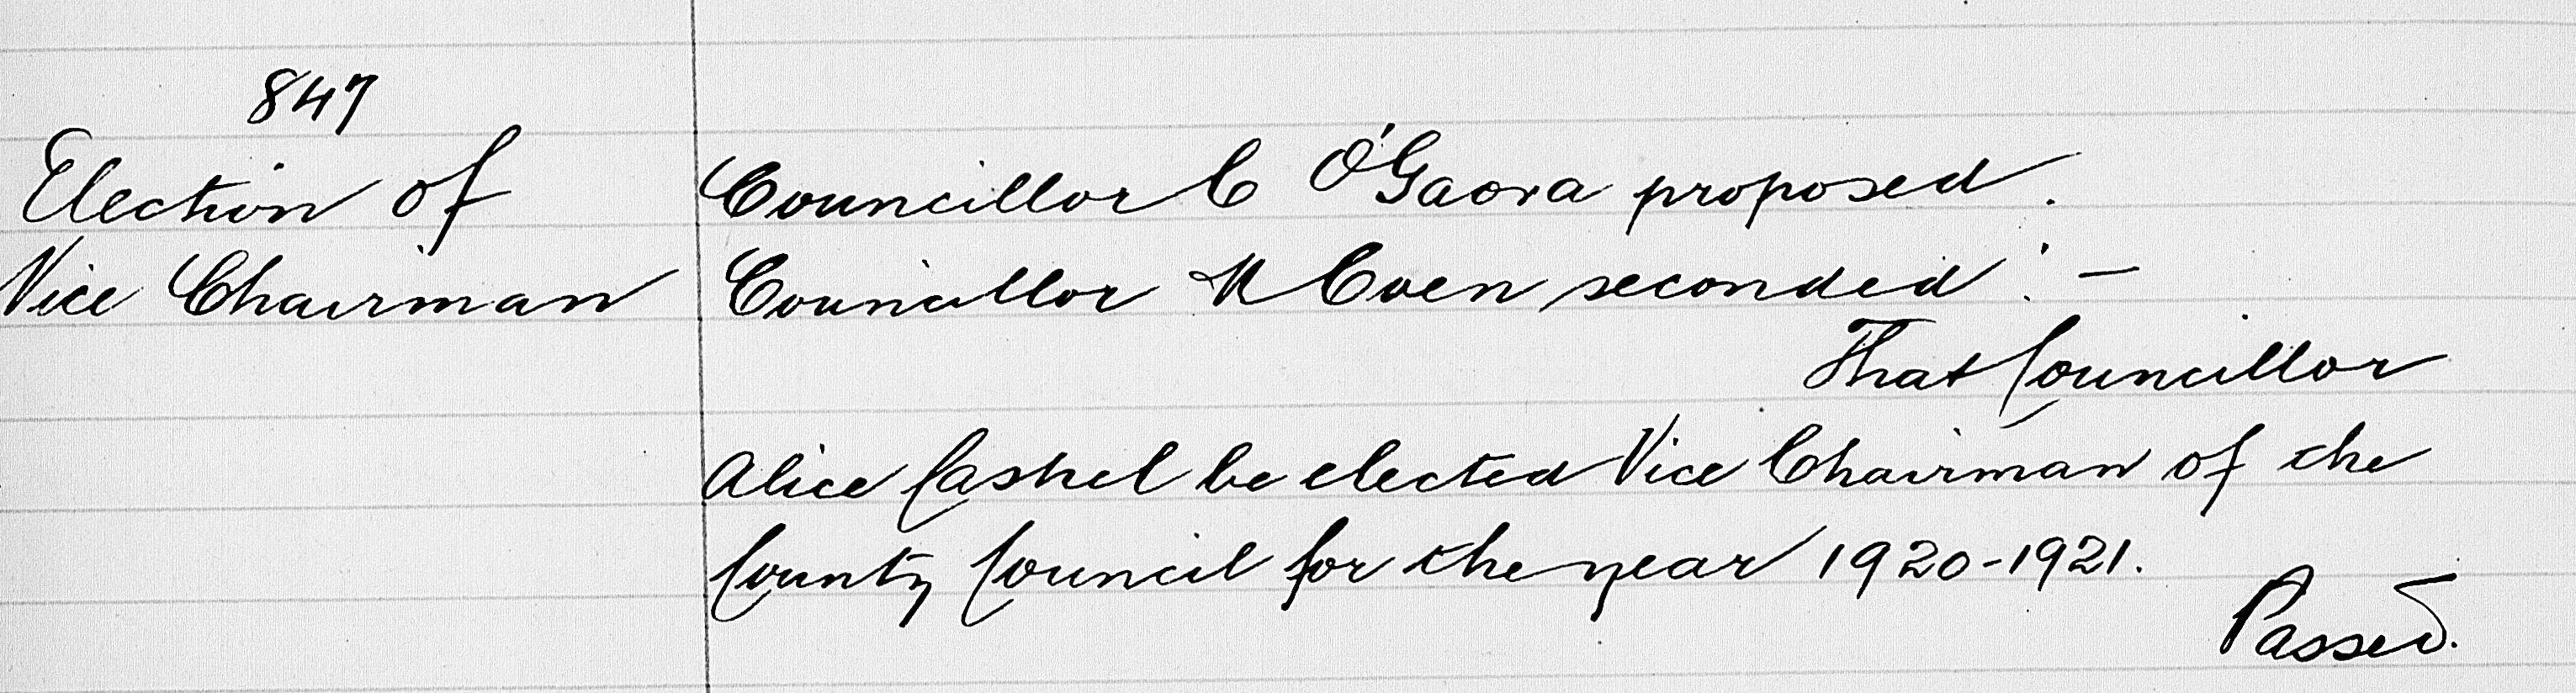 847
Election of
Vice Chairman
Councillor C O'Gaora proposed.
Councillor M Coen seconded :-
That Councillor
Alice Cashel be elected Vice Chairman of the
County Council for the year 1920-1921.
Passed.